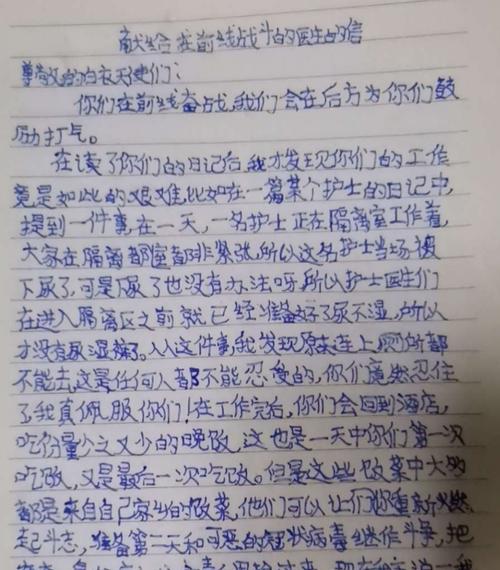 献给在前线战斗的医生的信
尊敬的白衣天使们:
你们在前线奋战,我们会在后方为你们鼓
励打气。
在读了你们的日记后,我才发现你们的工作
竟是如此的艰难,比如在一篇某个护士的日记中,
提到一件事,在一天,一名护士正在隔离室工作着,
大家在隔离都室都非紧张,所以这名护士当场被
下尿了,可是下尿了也没有办法呀,所以护士医生们
在进入隔离区之前就已经准备好了尿不湿,所以
才没有尿湿裤了。从这件事,我发现原来连上厕所都
不能去,这是任何人都不能忍受的,你们竟然忍住
了我真佩服你们!在工作完后,你们会回到酒店,
吃份量少之又少的晚饭,这也是一天中你们第一次
吃饭,又是最后一次吃饭。但是这些饭菜中大多
都是来自自己家乡的饭菜,他们可以让们你重新燃
起斗志,准备第二天和可恶的冠状病毒继作斗争,把